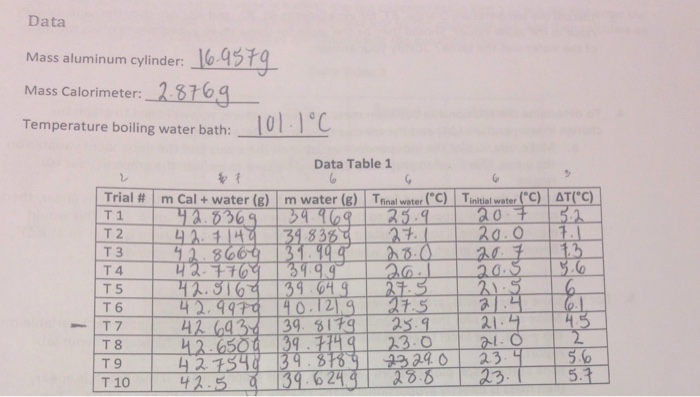 Data
Mass aluminum cylinder: 16.957g
Mass Calorimeter: 2.876g
Temperature boiling water bath: 101.1°C
Data Table 1
Trial # m Cal + water (g) m water (g) Tfinal water (°C) Tinitial water (°C) ΔT(°C)
T 1 42.836g 39.96g 25.9 20.7 5.2
T 2 42.714g 39.838g 27.1 20.0 7.1
T 3 42.866g 39.99g 28.0 20.7 7.3
T 4 42.776g 39.9g 26.1 20.5 5.6
T 5 42.516g 39.64g 27.5 21.5 6
T 6 42.997g 40.121g 27.5 21.4 6.1
T 7 42.693g 39.817g 25.9 21.4 4.5
T 8 42.650g 39.774g 23.0 21.0 2
T 9 42.754g 39.878g 29.0 23.4 5.6
T 10 42.5 g 39.624g 28.8 23.1 5.7